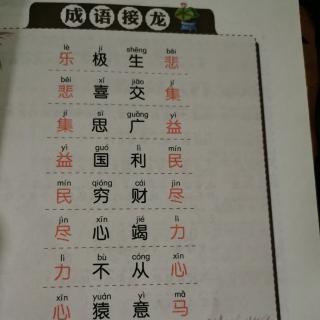 成语接龙
lè jí shēng bēi
乐极生悲
bēi xǐ jiāo jí
悲喜交集
jí sī guǎng yì
集思广益
yì guó lì mín
益国利民
mín qióng cái jìn
民穷财尽
jìn xīn jié lì
尽心竭力
lì bù cóng xīn
力不从心
xīn yuán yì mǎ
心猿意马